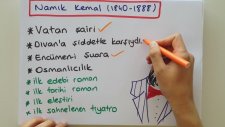 Namık Kemal (1840-1888)
* Vatan şairi ✓
* Divan'a şiddetle karşıydı
* Encümen-i Şuara ✓
* Osmanlıcılık
* ilk edebi roman
* ilk tarihi roman
* ilk eleştiri
* ilk sahnelenen tiyatro